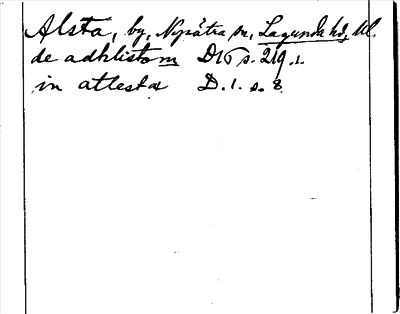 Alsta, by, Nysätra sn, Lagunda hd, Upl.
de adhlistom D16 s. 219.
in attesta D. 1. s. 8.